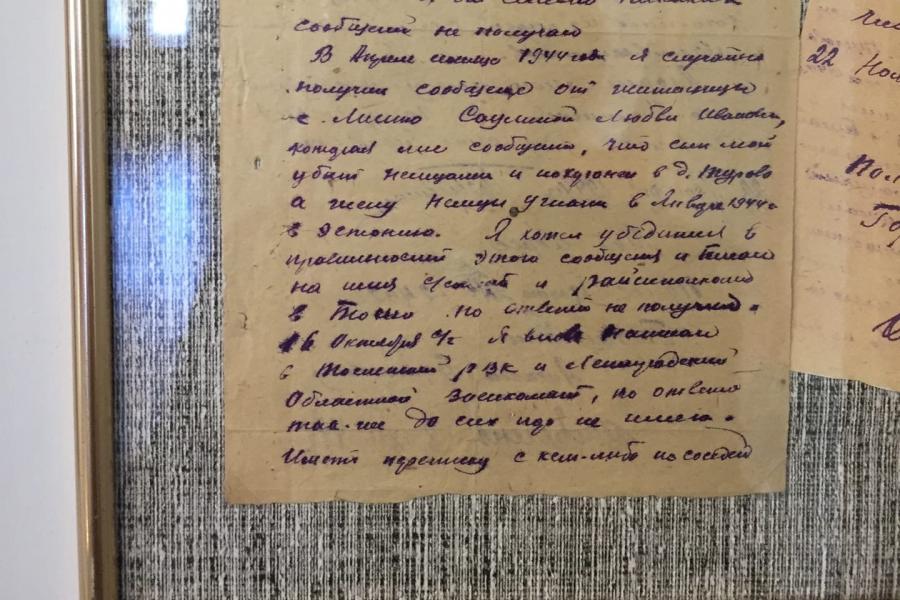 сообщений не получал
В Апреле месяце 1944 года я случайно
получил сообщение от жительницы
с. Лисино Любви Ивановны,
которая мне сообщила, что сын мой
убит немцами и похоронен в д. Турово
а жену немцы угнали в Январе 1944 г
в Эстонию. Я хотел убедится в
правильности этого сообщения и писал
на имя и райисполкома
в Тосно но ответа не получил.
16 Октября с/г Я вновь написал
в Тосненский РВК и Ленинградский
Областной Военкомат, но ответа
так-же до сих пор не имею.
Иметь переписку с кем-либо из соседей
22